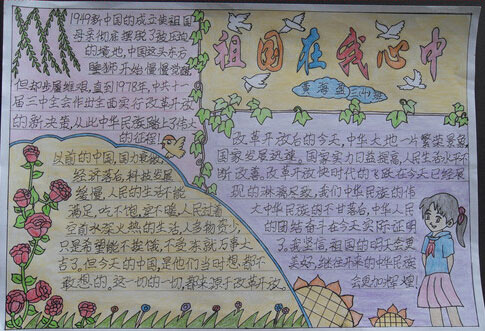 祖国在我心中
1949新中国的成立使祖国
母亲彻底摆脱了被压迫
的境地,中国这头东方
睡狮开始慢慢觉醒
但却步履维艰,直到1978年,中共十一
届三中全会作出全面实行改革开放
的新决策,从此中华民族踏上了伟大
的征程!
以前的中国,国力衰微,
经济落后,科技发展
缓慢,人民的生活不能
满足,吃不饱,穿不暖,人民过着
水深火热的生活,人多物资少,
只是希望能不挨饿,不受冻就万事大
吉了。但今天的中国,是他们当时想都不
敢想的。这一切的一切,都来源于改革开放。
改革开放后的今天,中华大地一片繁荣景象,
国家发展迅速。国家实力日益提高,人民生活水平不
断改善,改革开放使时代的飞跃在今天已经展
现的淋漓尽致,我们中华民族的伟
大中华民族的不甘落后,中华人民
的团结奋斗在今天实际证明
了。我坚信,祖国的明天会更
美好,继往开来的中华民族
会更加辉煌!